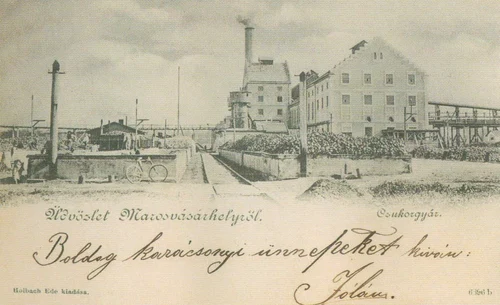 Üdvözlet Marosvásárhelyről. Czukorgyár.
Boldog karácsonyi ünnepeket kiván:
Jolán
Holbach Ede kiadása.